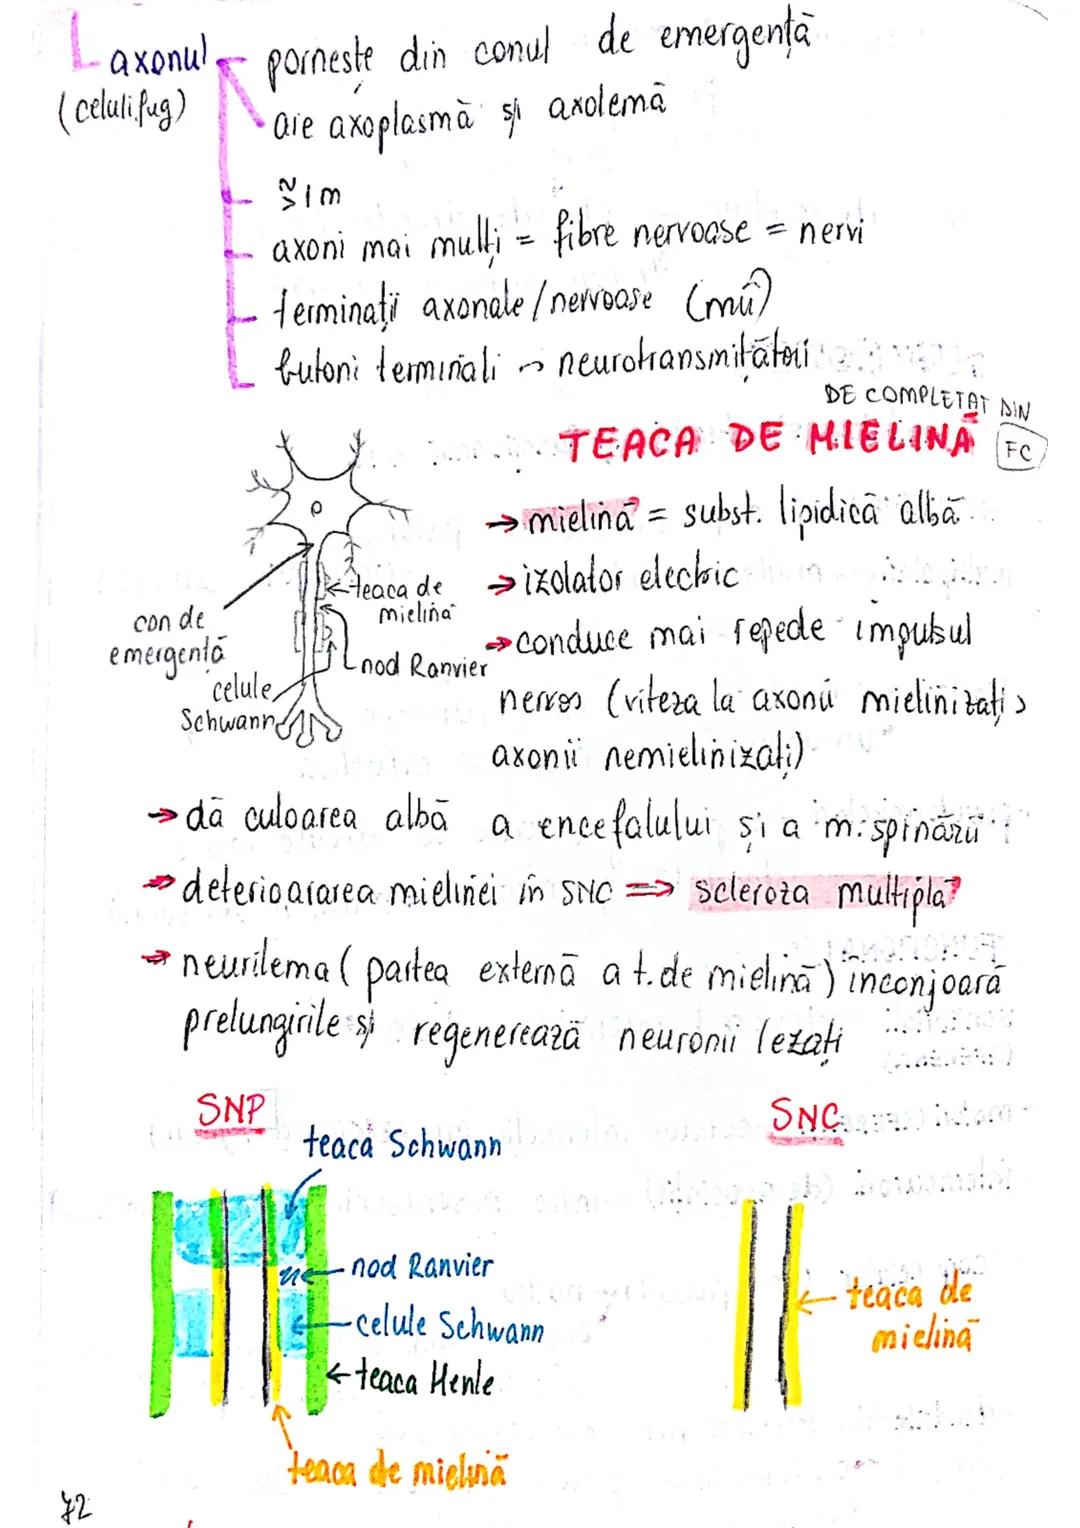 axonul
(celulifug)
pornește din conul de emergență
are axoplasmă și axolemă
≈ > 1 m
axoni mai mulți = fibre nervoase = nervi
terminații axonale/nervoase (mii)
butoni terminali → neurotransmițători
DE COMPLETAT DIN
FC
TEACA DE MIELINĂ
→ mielină = subst. lipidică albă
→ izolator electric
→ conduce mai repede impulsul
nervos (viteza la axonii mielinizați >
axonii nemielinizați)
teaca de
mielină
con de
emergență
nod Ranvier
celule
Schwann
→ dă culoarea albă a encefalului și a m. spinării
→ deterioararea mielinei în SNC => scleroza multiplă
→ neurilema (partea externă a t. de mielină) înconjoară
prelungirile și regenerează neuronii lezați
SNP
SNC
teacă Schwann
nod Ranvier
celule Schwann
teaca Henle
teaca de mielină
teaca de
mielină
72